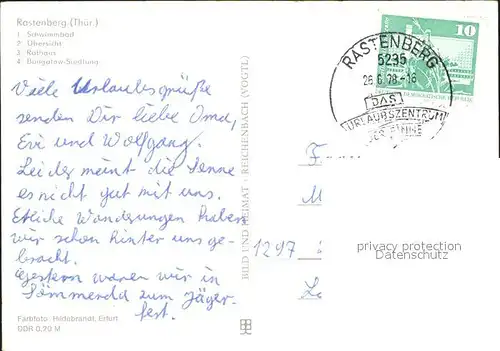 Rastenberg (Thür.)
1 Schwimmbad
2 Übersicht
3 Rathaus
4 Bungalow-Siedlung
Viele Urlaubsgrüße
senden Dir liebe Oma,
Evi und Wolfgang.
Leider meint die Sonne
es nicht gut mit uns.
Etliche Wanderungen haben
wir schon hinter uns ge-
bracht.
Gestern waren wir in
Sömmerda zum Jäger-
fest.
Farbfoto: Hildebrandt, Erfurt
DDR 0,20 M
BILD UND HEIMAT · REICHENBACH (VOGTL)
10
RASTENBERG
5235
DAS
URLAUBSZENTRUM
1297
privacy protection
Datenschutz